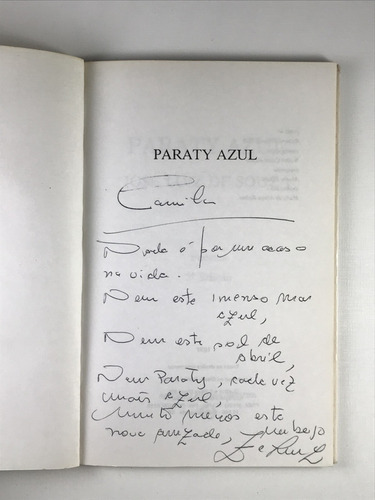 PARATY AZUL
Camila
Nada é por um acaso
na vida.
Nem este imenso mar
azul,
Nem este sol de
abril,
Nem Paraty, cada vez
mais azul,
Muito menos esta
nova amizade, um beijo
Zé Luiz